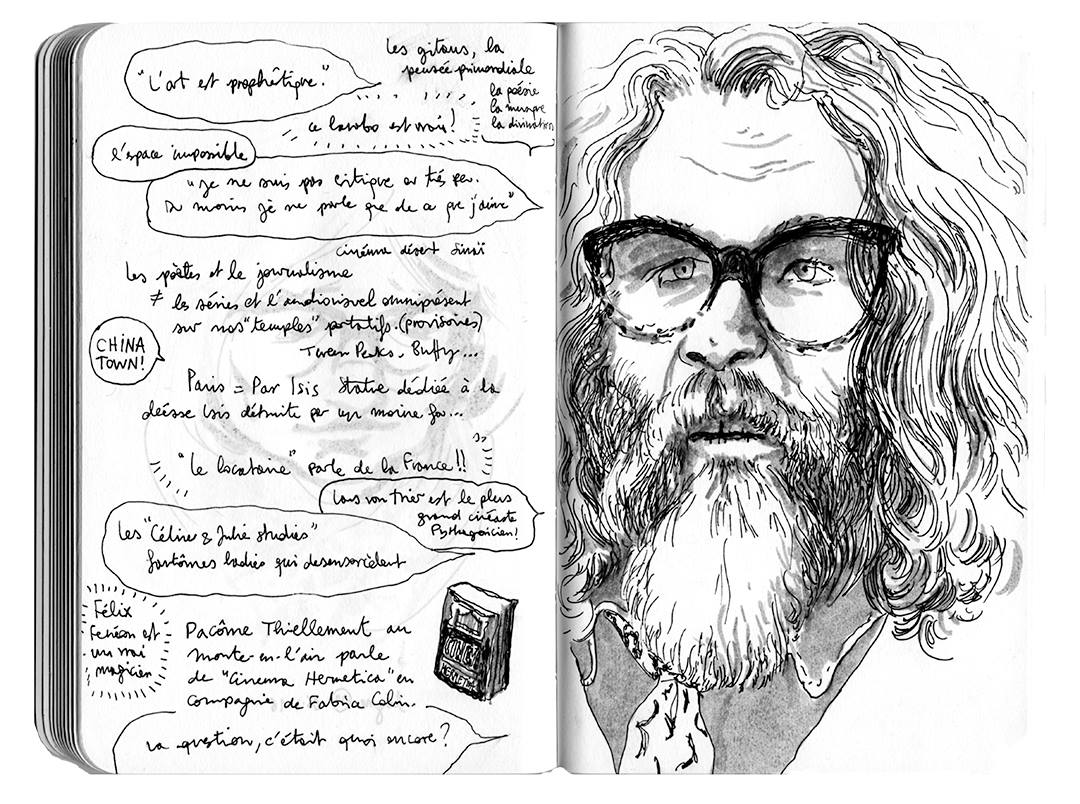 "L'art est prophétique."
les gitans, la
pensée primordiale
la poésie
la musique
la divination
ce lavabo est vrai!
l'espace impossible
"Je ne suis pas critique ou très peu.
Du moins je ne parle que de ce que j'aime"
cinéma désert Sinaï
les poètes et le journalisme
≠ les séries et l'audiovisuel omniprésent
sur nos "temples" portatifs. (provisoires)
Tween Peaks, Buffy...
CHINA
TOWN!
Paris = Par Isis statue dédiée à la
déesse Isis détruite par un moine fou...
"Le locataire" parle de la France!!
Lars von Trier est le plus
grand cinéaste
Pythagoricien!
Les "Céline & Julie studies"
fantômes ladies qui desensorcèlent
Félix
Fénéon est
un vrai
magicien
Pacôme Thiellement au
monte-en-l'air parle
de "Cinema Hermetica" en
compagnie de Fabrice Colin.
CINEMA
HERMETICA
La question, c'était quoi encore?